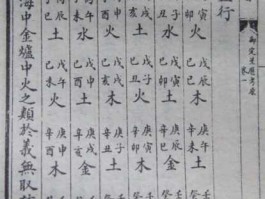 御定星歷考原 卷一
行
寅卯火 戊辰己巳木 庚午辛未土 壬
子丑水 戊寅己卯土 庚辰辛巳金 壬
戌亥土 戊子己丑火 庚寅辛卯木 壬
申酉火 戊戌己亥木 庚子辛丑土 壬
午未水 戊申己酉土 庚戌辛亥金 壬
辰巳土 戊午己未火 庚申辛酉木 壬
海中金爐中火之類於義無取